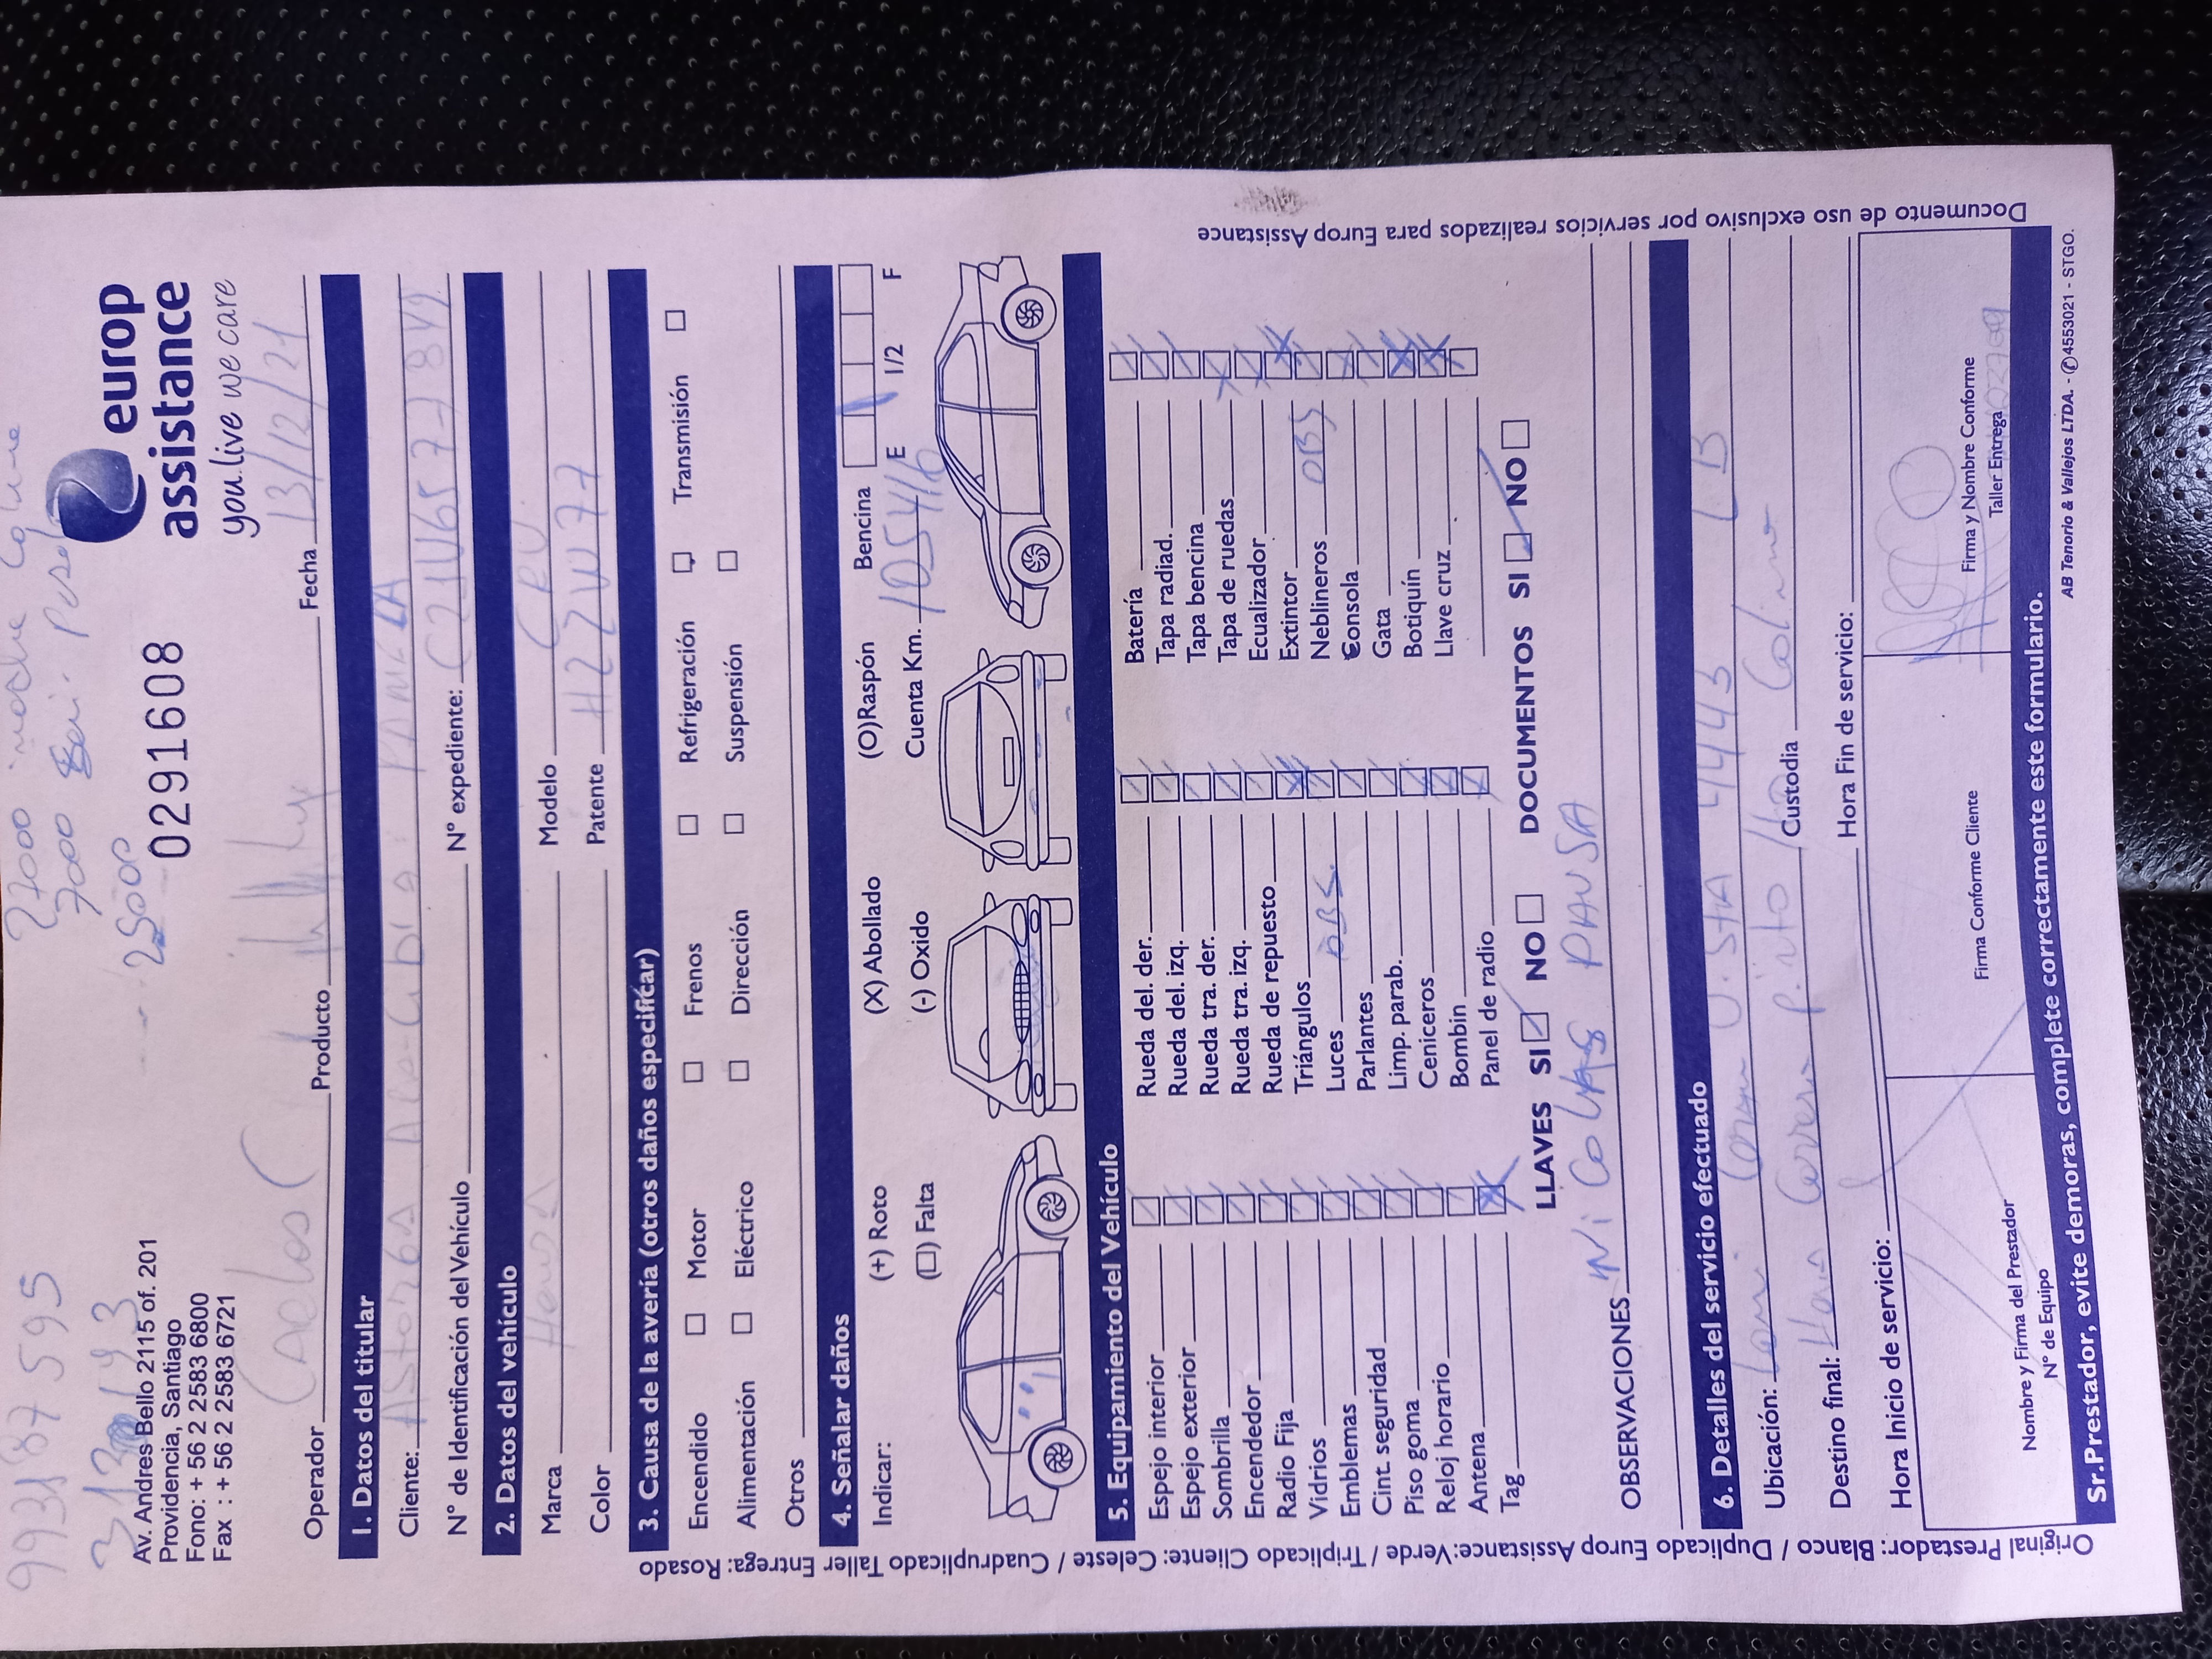 993187595
27000 noche
7000
25000
europ
assistance
you live we care
Av. Andres Bello 2115 of. 201
Providencia, Santiago
Fono: + 56 2 2583 6800
Fax : + 56 2 2583 6721
0291608
Operador Producto Fecha 13/12/21
1. Datos del titular
Cliente: Astorga
N° de Identificación del Vehículo N° expediente:
2. Datos del vehículo
Marca Honda Modelo CRV
Color Patente
3. Causa de la avería (otros daños especificar)
Encendido Motor Frenos Refrigeración Transmisión
Alimentación Eléctrico Dirección Suspensión
Otros
4. Señalar daños
Indicar: (+) Roto (X) Abollado (O)Raspón Bencina
(□) Falta (-) Oxido Cuenta Km. 105416 E 1/2 F
5. Equipamiento del Vehículo
Espejo interior Rueda del. der. Batería
Espejo exterior Rueda del. izq. Tapa radiad.
Sombrilla Rueda tra. der. Tapa bencina
Encendedor Rueda tra. izq. Tapa de ruedas
Radio Fija Rueda de repuesto Ecualizador
Vidrios Triángulos Extintor
Emblemas Luces OBS. Neblineros OBS
Cint. seguridad Parlantes Consola
Piso goma Limp. parab. Gata
Reloj horario Ceniceros Botiquín
Antena Bombin Llave cruz
Tag Panel de radio
LLAVES SI NO DOCUMENTOS SI NO
OBSERVACIONES
6. Detalles del servicio efectuado
Ubicación: 4443
Destino final: Pinto Custodia Colina
Hora Inicio de servicio: Hora Fin de servicio:
Nombre y Firma del Prestador
N° de Equipo
Firma Conforme Cliente
Firma y Nombre Conforme
Taller Entrega
Sr.Prestador, evite demoras, complete correctamente este formulario.
AB Tenorio & Vallejos LTDA. - ✆4553021 - STGO.
Original Prestador: Blanco / Duplicado Europ Assistance:Verde / Triplicado Cliente: Celeste / Cuadruplicado Taller Entrega: Rosado
Documento de uso exclusivo por servicios realizados para Europ Assistance